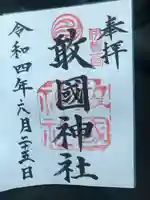 奉拝
敢國神社
令和四年六月二十五日